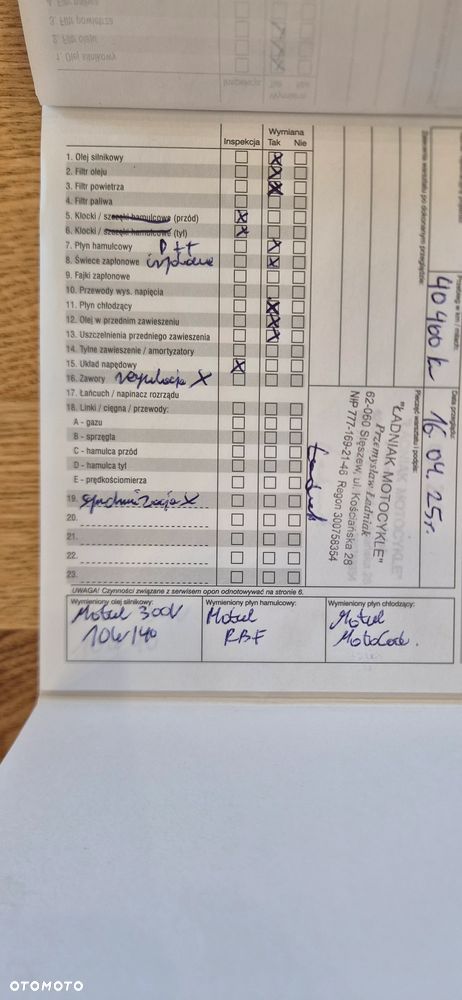 1. Olej silnikowy
2. Filtr oleju
3. Filtr powietrza
Inspekcja
Wymiana
Tak
Nie
1. Olej silnikowy X
2. Filtr oleju X
3. Filtr powietrza X
4. Filtr paliwa
5. Klocki / szczęki hamulcowe (przód) X
6. Klocki / szczęki hamulcowe (tył) X
7. Płyn hamulcowy P ++ X
8. Świece zapłonowe X
9. Fajki zapłonowe
10. Przewody wys. napięcia
11. Płyn chłodzący X
12. Olej w przednim zawieszeniu X
13. Uszczelnienia przedniego zawieszenia X
14. Tylne zawieszenie / amortyzatory
15. Układ napędowy X
16. Zawory regulacja X
17. Łańcuch / napinacz rozrządu
18. Linki / cięgna / przewody:
A - gazu
B - sprzęgła
C - hamulca przód
D - hamulca tył
E - prędkościomierza
19. synchronizacja X
20.
21.
22.
23.
UWAGA! Czynności związane z serwisem opon odnotowywać na stronie 6.
Wymieniony olej silnikowy:
Motul 300V
10W/40
Wymieniony płyn hamulcowy:
Motul
RBF
Wymieniony płyn chłodzący:
Motul
MotoCool.
Przebieg w km / milach:
40 400 km
Data przeglądu:
16.04.25r.
Zalecenia warsztatu po dokonanym przeglądzie:
Pieczęć warsztatu i podpis:
"ŁADNIAK MOTOCYKLE"
Przemysław Ładniak
62-060 Stęszew, ul. Kościańska 28
NIP 777-169-21-46, Regon 300758354
OTOMOTO